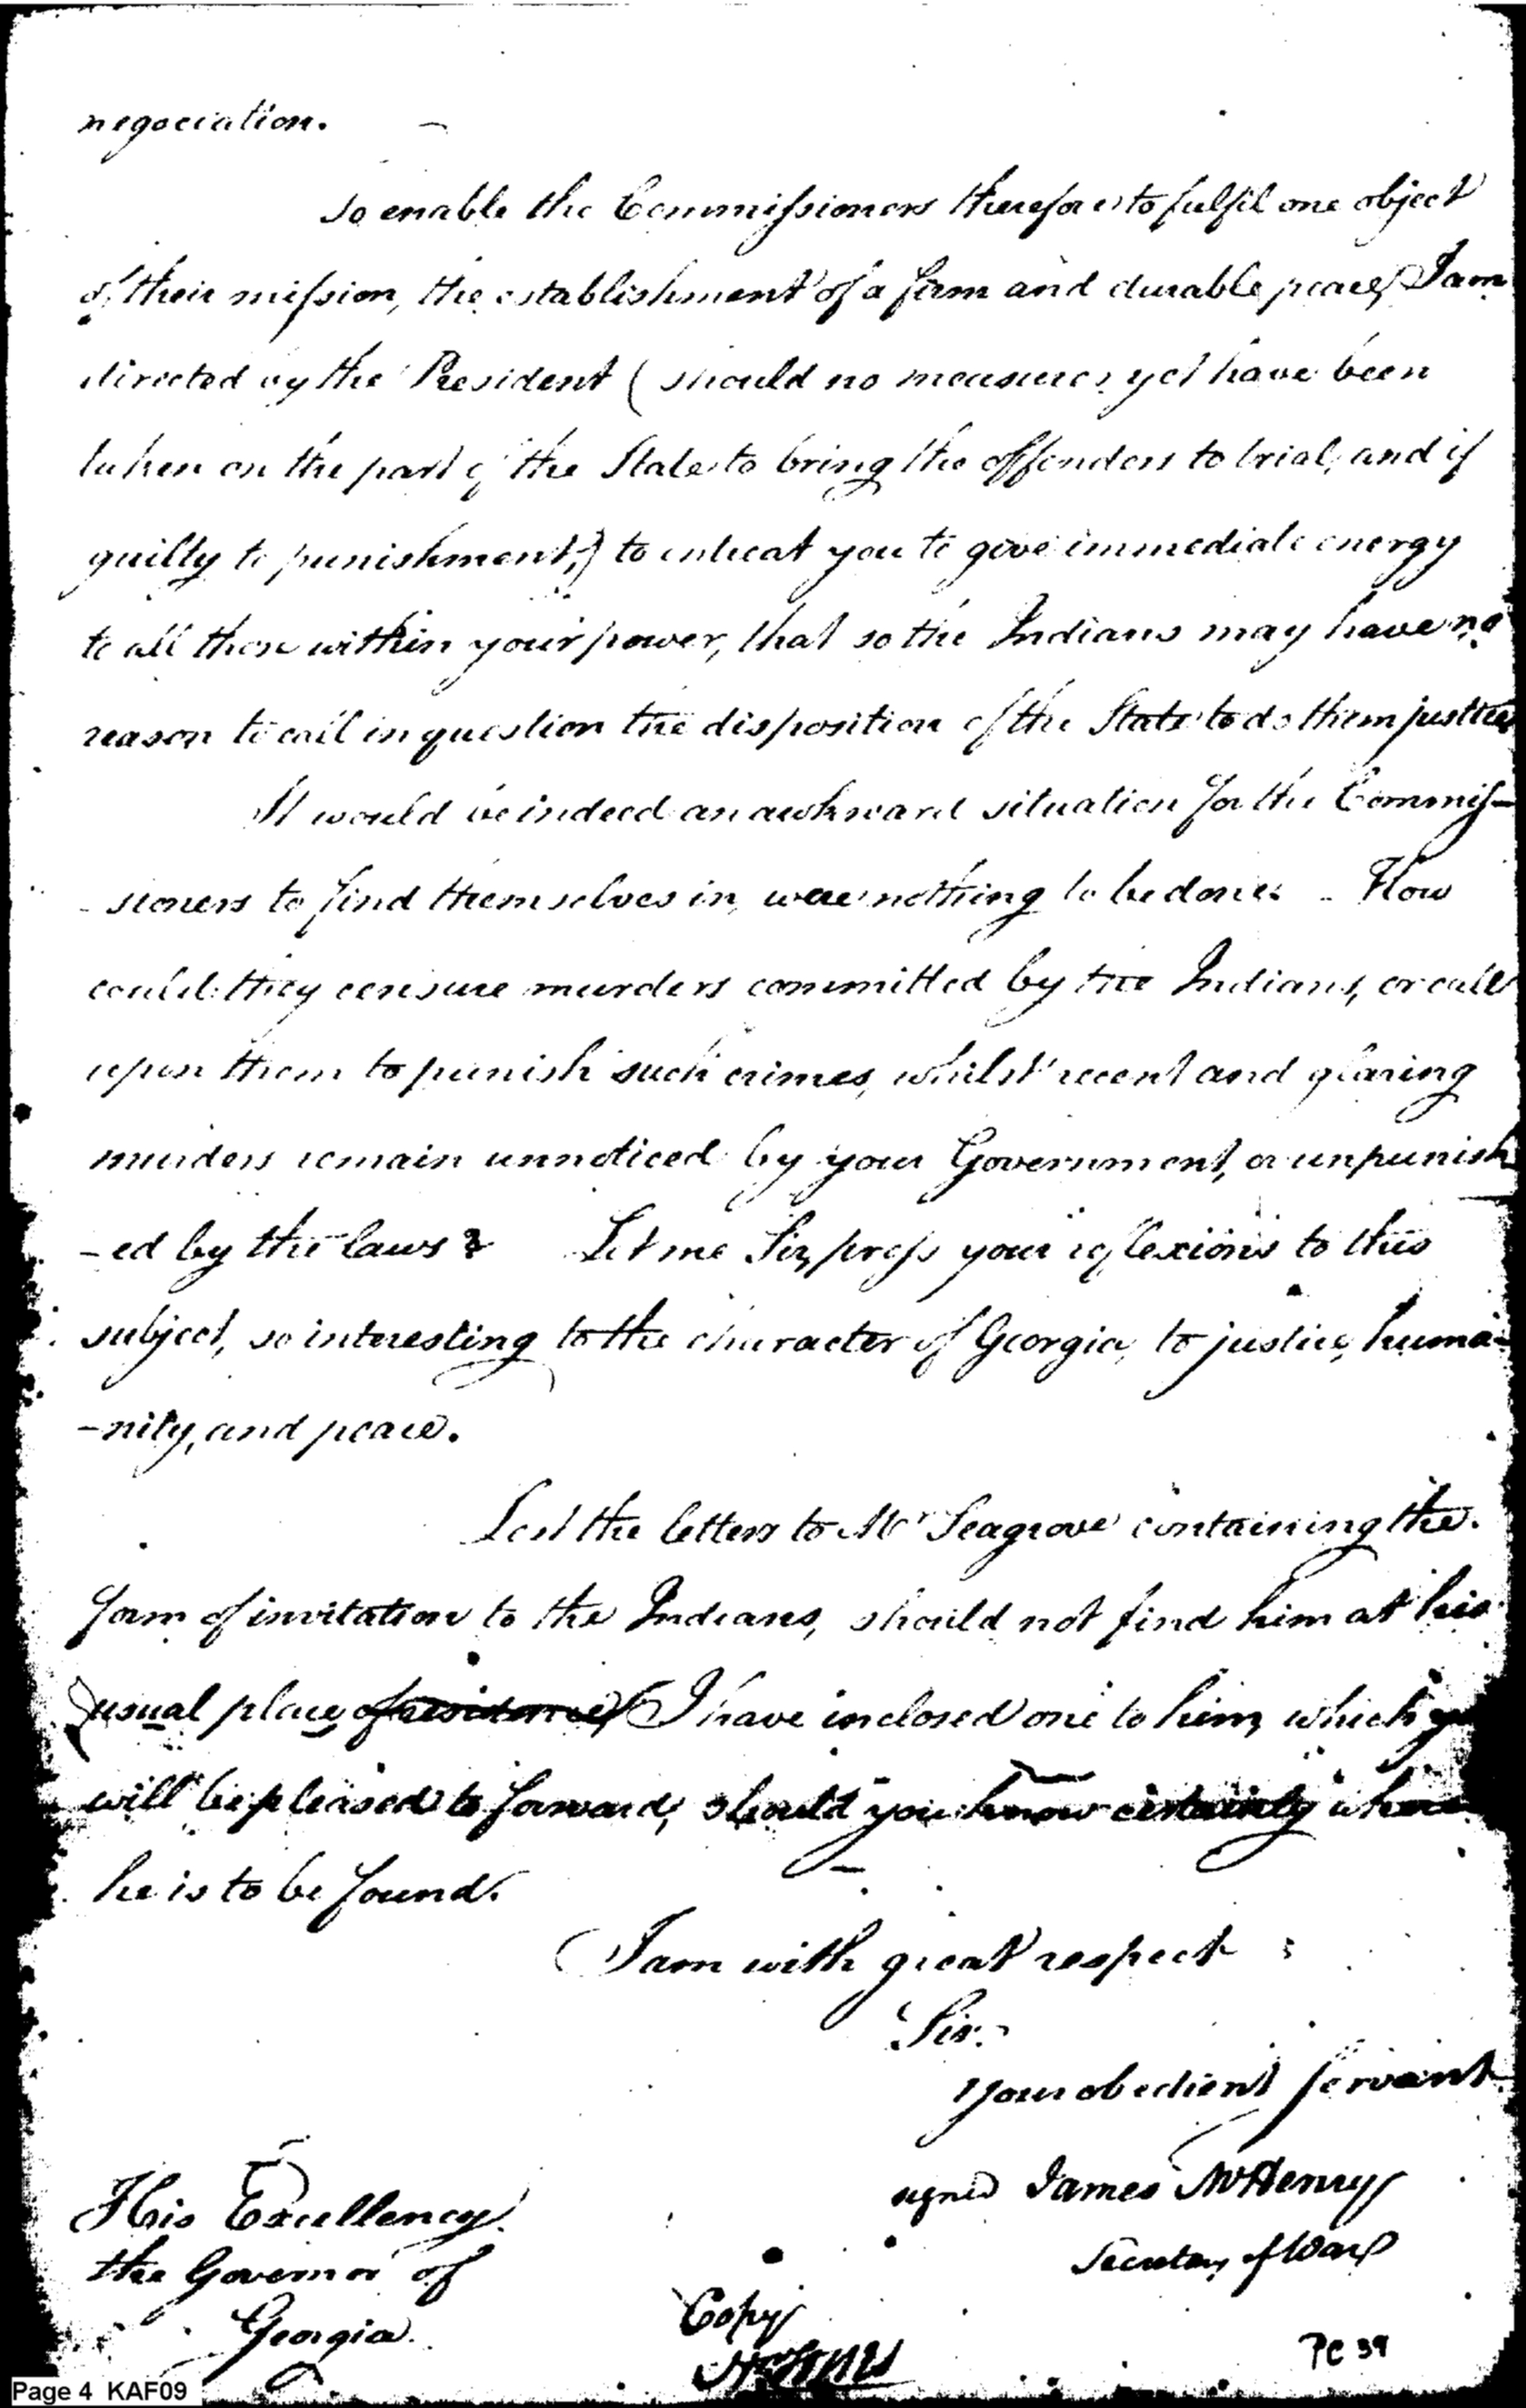 negociation.
To enable the Commissioners therefore to fulfil one object
of their mission, the establishment of a firm and durable peace, I am
directed by the President (should no measures yet have been
taken on the part of the State to bring the offenders to trial, and if
guilty to punishment,) to entreat you to give immediate energy
to all those within your power, that so the Indians may have no
reason to call in question the disposition of the State to do them justice
It would be indeed an awkward situation for the Commis-
-sioners to find themselves in, were nothing to be done. How
could they censure murders committed by the Indians, or call
upon them to punish such crimes, whilst recent and glaring
murders remain unnoticed by your Government, or unpunish
-ed by the laws? Let me Sir, press your reflexions to this
subject, so interesting to the character of Georgia, to justice, huma-
-nity, and peace.
Lest the letters to Mr Seagrove containing the
form of invitation to the Indians, should not find him at his
usual place of residence, I have inclosed one to him, which you
will be pleased to forward, should you know certainly where
he is to be found.
I am with great respect
Sir.
Your obedient servant
signed James McHenry
Secretary of War
His Excellency
the Governor of
Georgia.
Copy
PC 39
Page 4 KAF09